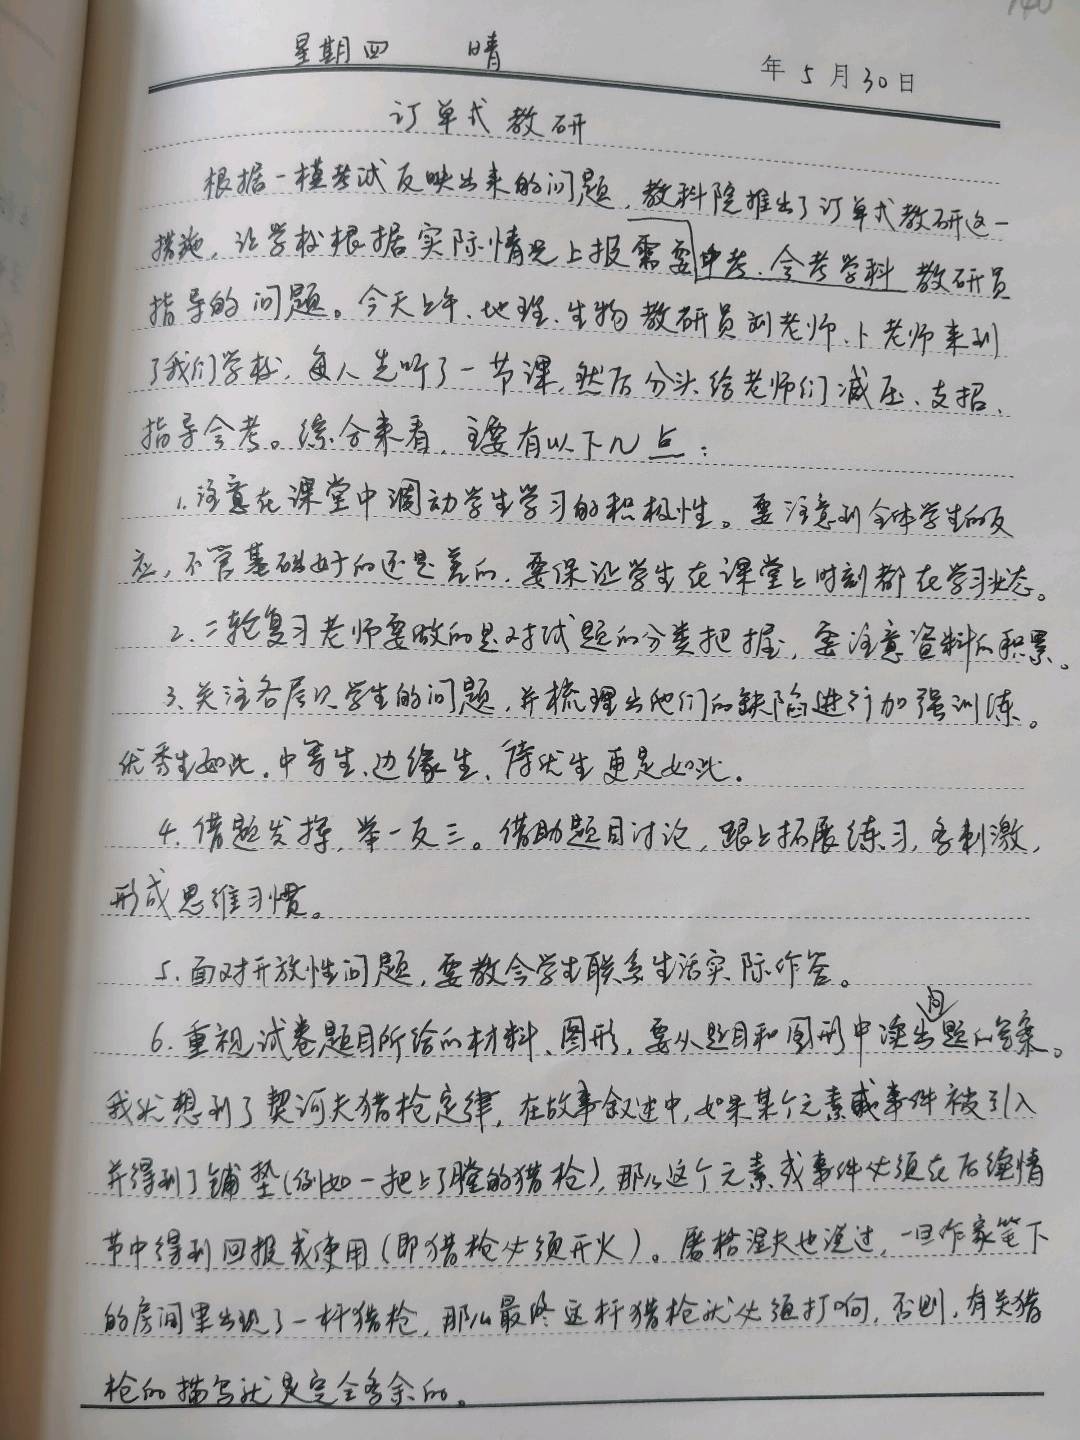 星期四 晴 年5月30日
订单式教研
根据一模考试反映出来的问题,教科院推出了订单式教研这一
措施,让学校根据实际情况上报需要中考、会考学科教研员
指导的问题。今天上午、地理、生物教研员刘老师、卜老师来到
了我们学校,每人先听了一节课,然后分头给老师们减压、支招、
指导会考。综合来看,主要有以下几点:
1.注意在课堂中调动学生学习的积极性。要注意到全体学生的反
应,不管基础好的还是差的,要保证学生在课堂上时刻都在学习状态。
2.二轮复习老师要做的是对试题的分类把握,要注意资料的积累。
3、关注各层次学生的问题,并梳理出他们的缺陷进行加强训练。
优秀生如此,中等生、边缘生、待优生更是如此。
4.借题发挥,举一反三。借助题目讨论,跟上拓展练习,多刺激,
形成思维习惯。
5.面对开放性问题,要教会学生联系生活实际作答。
6.重视试卷题目所给的材料、图形,要从题目和图形中读出问题的答案。
我就想到了契诃夫猎枪定律,在故事叙述中,如果某个元素或事件被引入
并得到了铺垫(例如一把上了膛的猎枪),那么这个元素或事件必须在后续情
节中得到回报或使用(即猎枪必须开火)。屠格涅夫也说过,一旦作家笔下
的房间里出现了一杆猎枪,那么最终这杆猎枪就必须打响,否则,有关猎
枪的描写就是完全多余的。